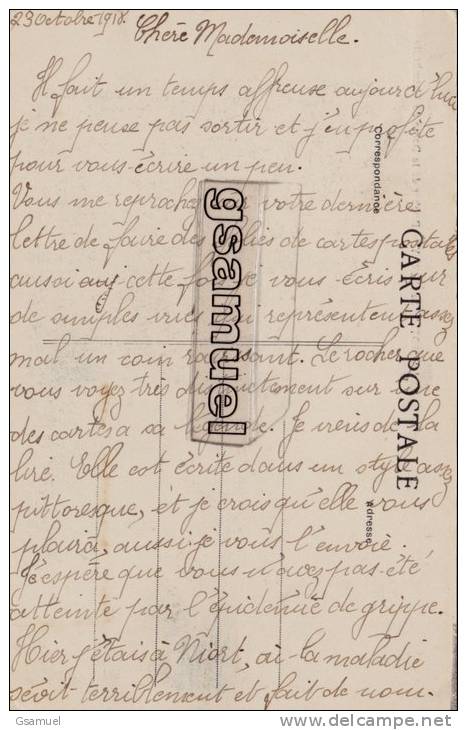 23 Octobre 1918.
Chère Mademoiselle.
Il fait un temps affreuse aujourd'hui
je ne pense pas sortir et j'en profite
pour vous écrire un peu.
Vous me reprochez sur votre dernière
lettre de faire des de cartes postales
aussi cette fois je vous écris sur
de simples vues qui représentent assez
mal un coin ravissant. Le rocher que
vous voyez très distinctement sur une
des cartes a sa légende. Je viens de la
lire. Elle est écrite dans un style assez
pittoresque, et je crois qu'elle vous
plaira, aussi je vous l'envoie.
J'espère que vous n'avez pas été
atteinte par l'épidémie de grippe.
Hier j'étais à Niort, où la maladie
sévit terriblement et fait de nom-
CARTE POSTALE
Correspondance
Adresse
gsamuel
Gsamuel
delcampe.net